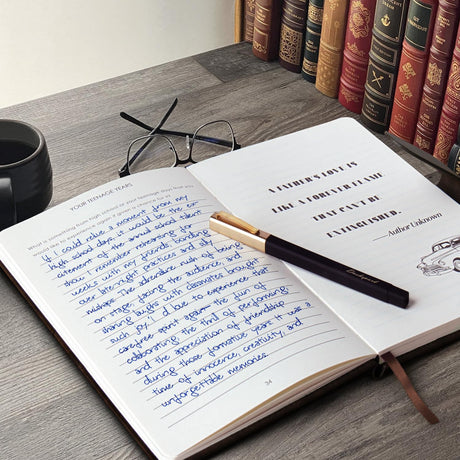 YOUR TEENAGE YEARS
What is something from high school or your teenage days that you
would like to experience again if given a chance?
If I could relive a moment from my
high school days it would be the ex-
citement of the annual school talent
show. I remember rehearsing for
weeks with my friends, bonding
over late-night practices and silly
mishaps. The adrenaline rush of being
on stage, facing the audience, and
sharing laughs with classmates brought
such joy. I'd love to experience that
carefree spirit again the fun of
collaborating, the thrill of performing,
and the appreciation of friendship
during those formative years. It was a
time of innocence, creativity, and
unforgettable memories.
34
A FATHER'S LOVE IS
LIKE A FOREVER FLAME
THAT CAN'T BE
EXTINGUISHED.
— Author Unknown